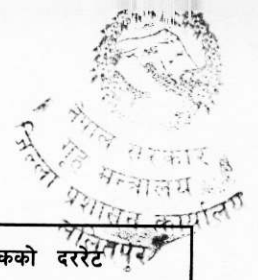 नेपाल सरकार
गृह मन्त्रालय
जिल्ला प्रशासन कार्यालय
ललितपुर
कको दररेट